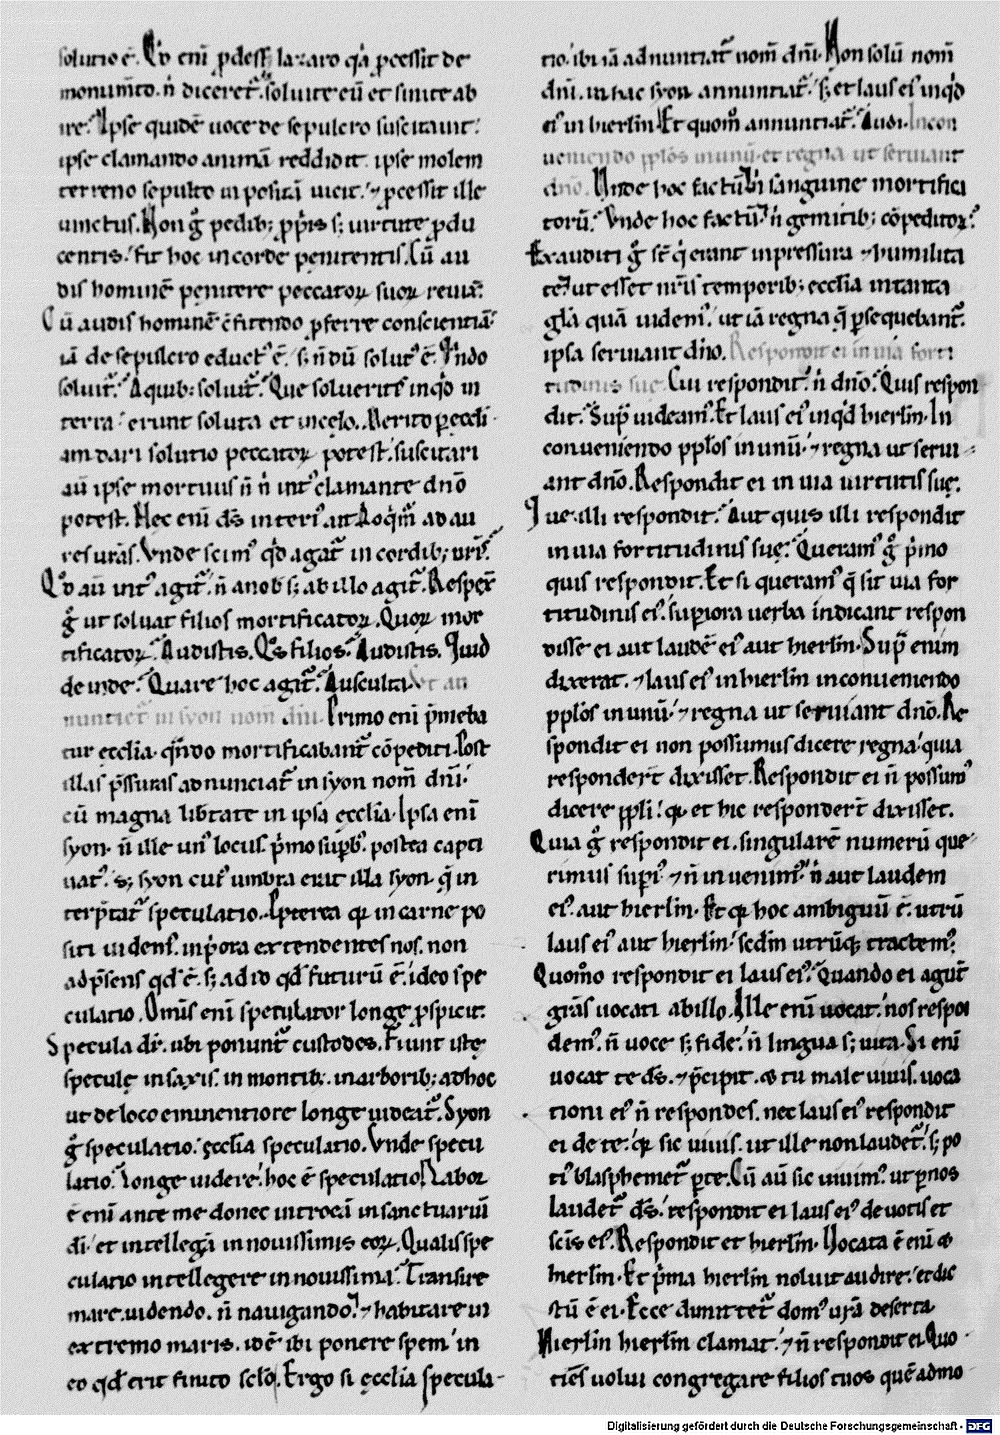 solutio ē. Qd enī ꝓdesset lazaro qa ꝓcessit de
monumto. n̄ diceretur. soluite eū et sinite ab
ire. Ipse quidē uoce de sepulcro suscitauit.
ipse clamando animā reddidit. ipse molem
terreno sepulto inpositā uicit. ⁊ ꝓcessit ille
uinctus. Non g̊ pedib; ꝓpriis s; uirtute ꝓdu
centis. fit hoc in corde penitentis. Cū au
dis hominē penitere peccatoꝝ suoꝝ reuix.
Cū audis hominē cfitendo ꝓferre conscientiā.
iā de sepulcro educt᾽ ē. s; n̄dū solut᾽ ē. Qn̄do
soluit᾽. A quib; soluit᾽. Que solueritis inqd in
terra. erunt soluta et in celo. Merito ꝑ eccli
am dari solutio peccatoꝝ potest. suscitari
aū ipse mortuus n̄ n̄ int᾽ clamante dn̄o
potest. Hec enī ds̄ interi᾽ ait. Loqm᾽ ad au
res uras. Vnde scim᾽ qd agat᾽ in cordib; uris.
Qd aū int᾽ agit᾽. n̄ a nob s; ab illo agit᾽. Respex
g̊ ut soluat filios mortificatoꝝ. Quoꝝ mor
tificatoꝝ. Audistis. Qs filios. Audistis. Quid
deinde. Quare hoc agit᾽. Ausculta. Vt an
nuntiet᾽ in syon nom̄ dn̄i. Primo enī p̄meba
tur ęcclia. qn̄do mortificabant᾽ cōpediti. Post
illas p̄ssuras adnunciat᾽ in syon nom̄ dn̄i.
cū magna libtate in ipsa ęcclia. Ipsa enī
syon. n̄ ille un᾽ locus. pmo supb᾽. postea capti
uat᾽. s; syon cui᾽ umbra erat illa syon. q̄ in
terp̄tat᾽ speculatio. Ppterea qꝛ in carne po
siti uidem᾽. in p̄ora extendentes nos. non
ad p̄sens qd ē. s; ad id qd futurū ē. ideo spe
culatio. Omīs enī speculator longe ꝓspicit.
Specula dr̄. ubi ponunt᾽ custodes. Fiunt istę
speculę in saxis. in montib;. in arborib; ad hoc
ut de loco eminentiore longe uideat᾽. Syon
g̊ speculatio. ęcclia speculatio. Vnde specu
latio. Longe uidere. hoc ē speculatio. Labor
ē enī ante me donec introeā in sanctuariū
di. et intellegā in nouissimis eoꝝ. Qualis spe
culatio intellegere in nouissima. Transire
mare uidendo. n̄ nauigando. ⁊ habitare in
extremo maris. idē ibi ponere spem. in
eo qd erit finito sclo. Ergo si ęcclia specula
tio. ibi iā adnuntiat᾽ nom̄ dn̄i. Non solū nom̄
dn̄i. in hac syon annuntiat᾽. s; et laus ei᾽ inqd
ei᾽ in hierlm̄. Et quom̊ annuntiat᾽. Audi. In con
ueniendo pplos in unū. et regna ut seruiant
dn̄o. Vnde hoc factū. n̄ sanguine mortifica
torū. Vnde hoc factū. n̄ gemitib; cōpeditoꝝ.
Exauditi g̊ st̄ qi erant in pressura ⁊ humilita
te. ut esset nr̄is temporib; ecclia in tanta
gl̄a quā uidem᾽. ut iā regna q̄ ꝑsequebant᾽.
ipsa seruiant dn̄o. Respondit ei in uia forti
tudinis suę. Cui respondit. n̄ dn̄o. Quis respon
dit. Sup̄ uideam᾽. Et laus ei᾽ inqd hierlm̄. In
conueniendo pplos in unū. ⁊ regna ut serui
ant dn̄o. Respondit ei in uia uirtutis suę.
Que illi respondit. Aut quis illi respondit
in uia fortitudinis suę. Queram᾽ g̊ p̄mo
quis respondit. Et si queram᾽ q̄ sit uia for
titudinis ei᾽. supiora uerba indicant respon
disse ei aut laudē ei᾽ aut hierlm̄. Sup̄ enim
dixerat. ⁊ laus ei᾽ in hierlm̄ in conueniendo
pplos in unū. ⁊ regna ut seruiant dn̄o. Re
spondit ei non possumus dicere regna. quia
responder̄t dixisset. Respondit ei n̄ possum᾽
dicere ppli. qꝛ et hic responder̄t dixisset.
Quia g̊ respondit ei. singularē numerū que
rimus supi᾽ ⁊ n̄ inuenim᾽. n̄ aut laudem
ei᾽. aut hierlm̄. Et qꝛ hoc ambiguū ē. utrū
laus ei᾽ aut hierlm̄. sedm̄ utrūq; tractem᾽.
Quom̊o respondit ei laus ei᾽. Quando ei agut
gr̄as uocati ab illo. Ille enī uocat. nos respon
dem᾽. n̄ uoce s; fide. n̄ lingua s; uita. Si enī
uocat te ds̄. ⁊ p̄cipit. & tu male uiuis. uoca
tioni ei᾽ n̄ respondes. nec laus ei᾽ respondit
ei de te. qꝛ sic uiuis. ut ille non laudet᾽. s; po
ti᾽ blasphemet᾽ ꝑ te. Cū aū sic uiuim᾽. ut ꝑ nos
laudet᾽ ds̄. respondit ei laus ei᾽ de uotis et
scīs ei᾽. Respondit et hierlm̄. Vocata ē enī &
hierlm̄. Et p̄ma hierlm̄ noluit audire. et dic
tū ē ei. Ecce dimittet᾽ dom᾽ ur̄a deserta
Hierlm̄ hierlm̄ clamat. ⁊ n̄ respondit ei. Quo
tiēs uolui congregare filios tuos quē admo
Digitalisierung gefördert durch die Deutsche Forschungsgemeinschaft - DFG